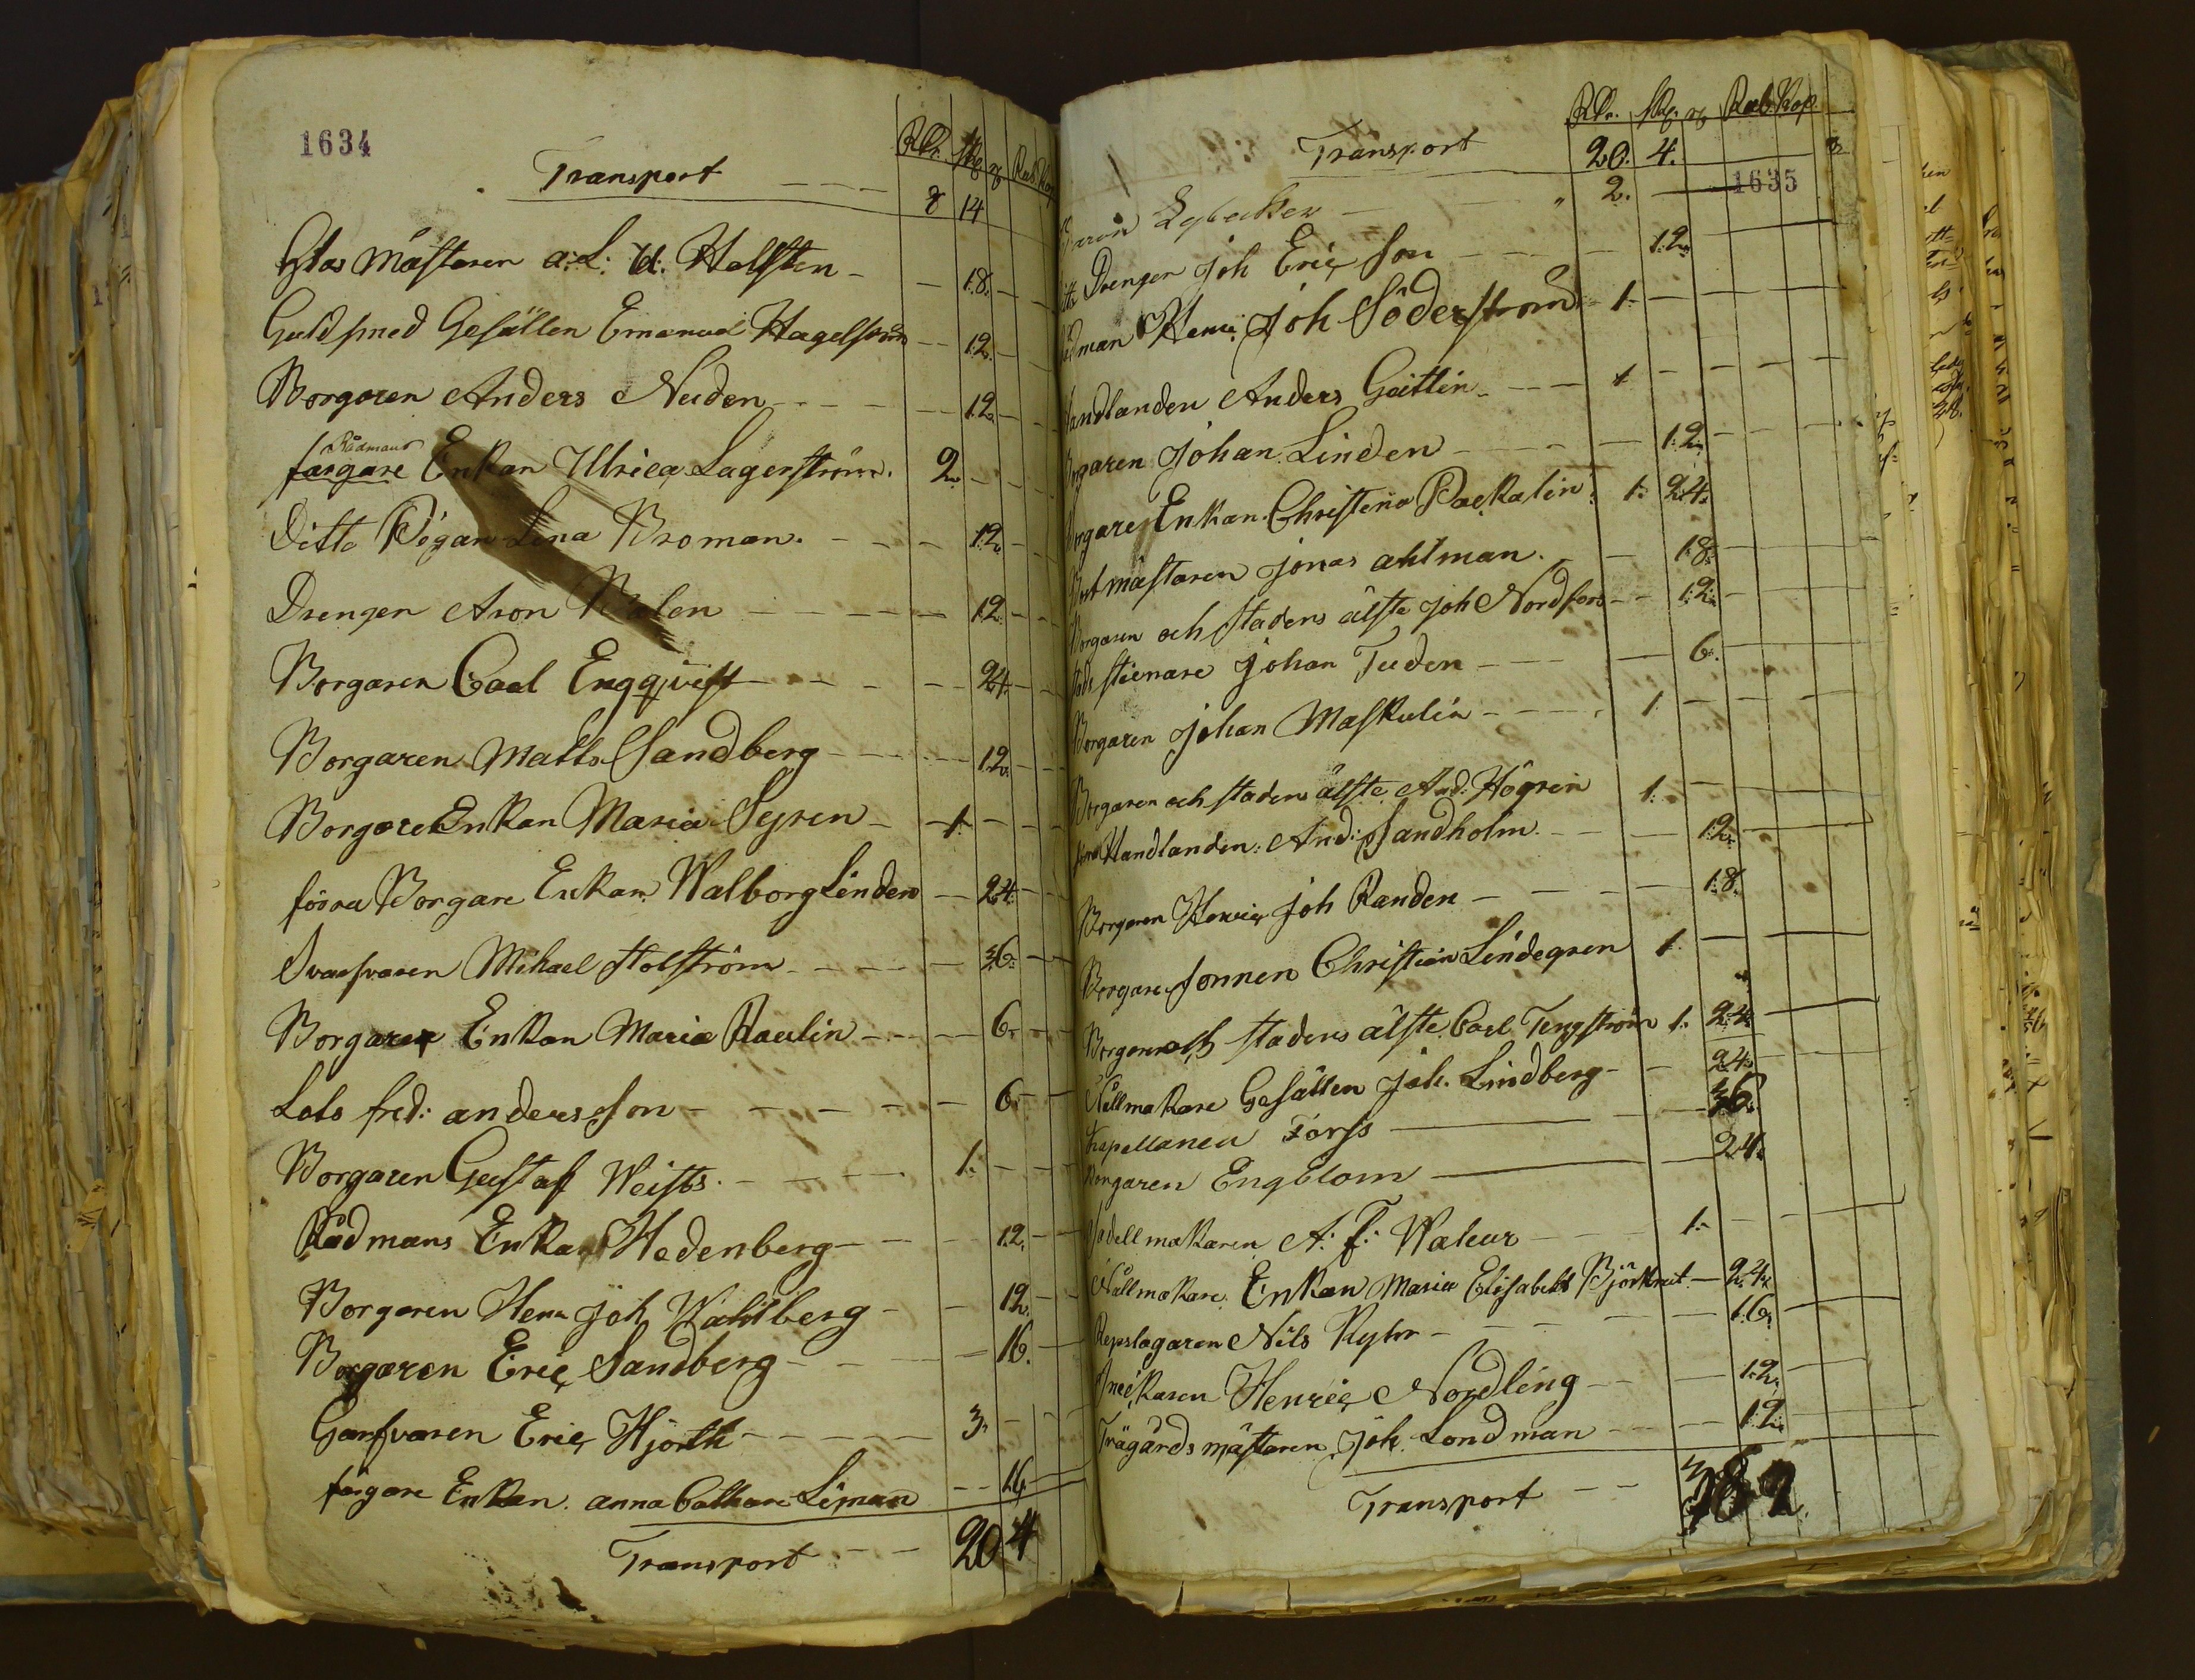 1634
Rdr. skg rs Rub. Kop
Transport - - - 8 14
Glas Mästaren a: L: U: Hallsten - - 18. - -
Guldsmed Gesällen Emanuel Hagelström - - 12. - -
Borgaren Anders Nuden - - - - 12. -
Rådmans
färgare Enkan Ulrica Lagerström. 2. - - -
Ditto Pigan Lena Broman. - - - - 12. -
Drengen Aron - - - - - 12 - -
Borgaren Carl Engqvist - - - - - 24. - -
Borgaren Matts Sandberg - - - - 12. - -
Borgare Enkan Maria Segren - 1. - - -
förra Borgare Enkan Walborg Linden - 24. - -
Svarfvaren Mihael Holström - - - - - 36. - -
Borgare Enkan Maria Paulin - - - - 6. - -
Lots fred: andersson - - - - - - 6. - -
Borgaren Gustaf Weists. - - - - - 1. - - -
Rådmans Enkan Hedenberg - - - 12. - -
Borgaren Henr Joh Wahlberg - - 12. - -
Borgaren Eric Sandberg - - - - 16. -
Garfvaren Eric Hjorth - - - - - 3. - - -
färgare Enkan. anna Cathar Liman - - 16.
Transport - - - 20 4
Rdr. skg. rs Rub. Kop.
Transport 20. 4.
1635
2. -
Drengen Joh Eric son - - - - 12. -
Henric Joh Söderström 1. - - - -
Handlanden Anders Geitlin. - - - 1 - - - -
Borgaren Johan Linden - - - - 12. - - -
Borgare Enkan Christina Packalin 1. 24.
mästaren Jonas ahlman. - - 18. - -
Borgaren och Stadens älste Joh Nordfors - - 12. -
Johan Tuden - - - - 6. - -
Borgaren Johan Maskulin - - - - 1 - - -
Borgaren och stadens älste And: Högren 1. - - -
Handlanden: And: Sandholm. - - - 12. -
Borgaren Henric Joh Randen - - - - 18. - -
Borgare Sonnen Christian Lindegren 1. - - -
Borgaren och stadens älste Carl Tengström 1. 24. - -
Gesällen Joh. Lindberg - - 24. - -
Kapellanen Forss - - 36.
Borgaren Engblom - - 24.
Sadellmakaren A: F: - - - 1. - - -
Nållmakare Enkan Maria Elisabeth - 24. - -
Repslagaren Nils - - - - - 16. - -
Snickaren Henric Nordling - - - 12. - -
Trägårdsmästaren Joh. Londman - - - 12. - -
Transport - - 38 2.